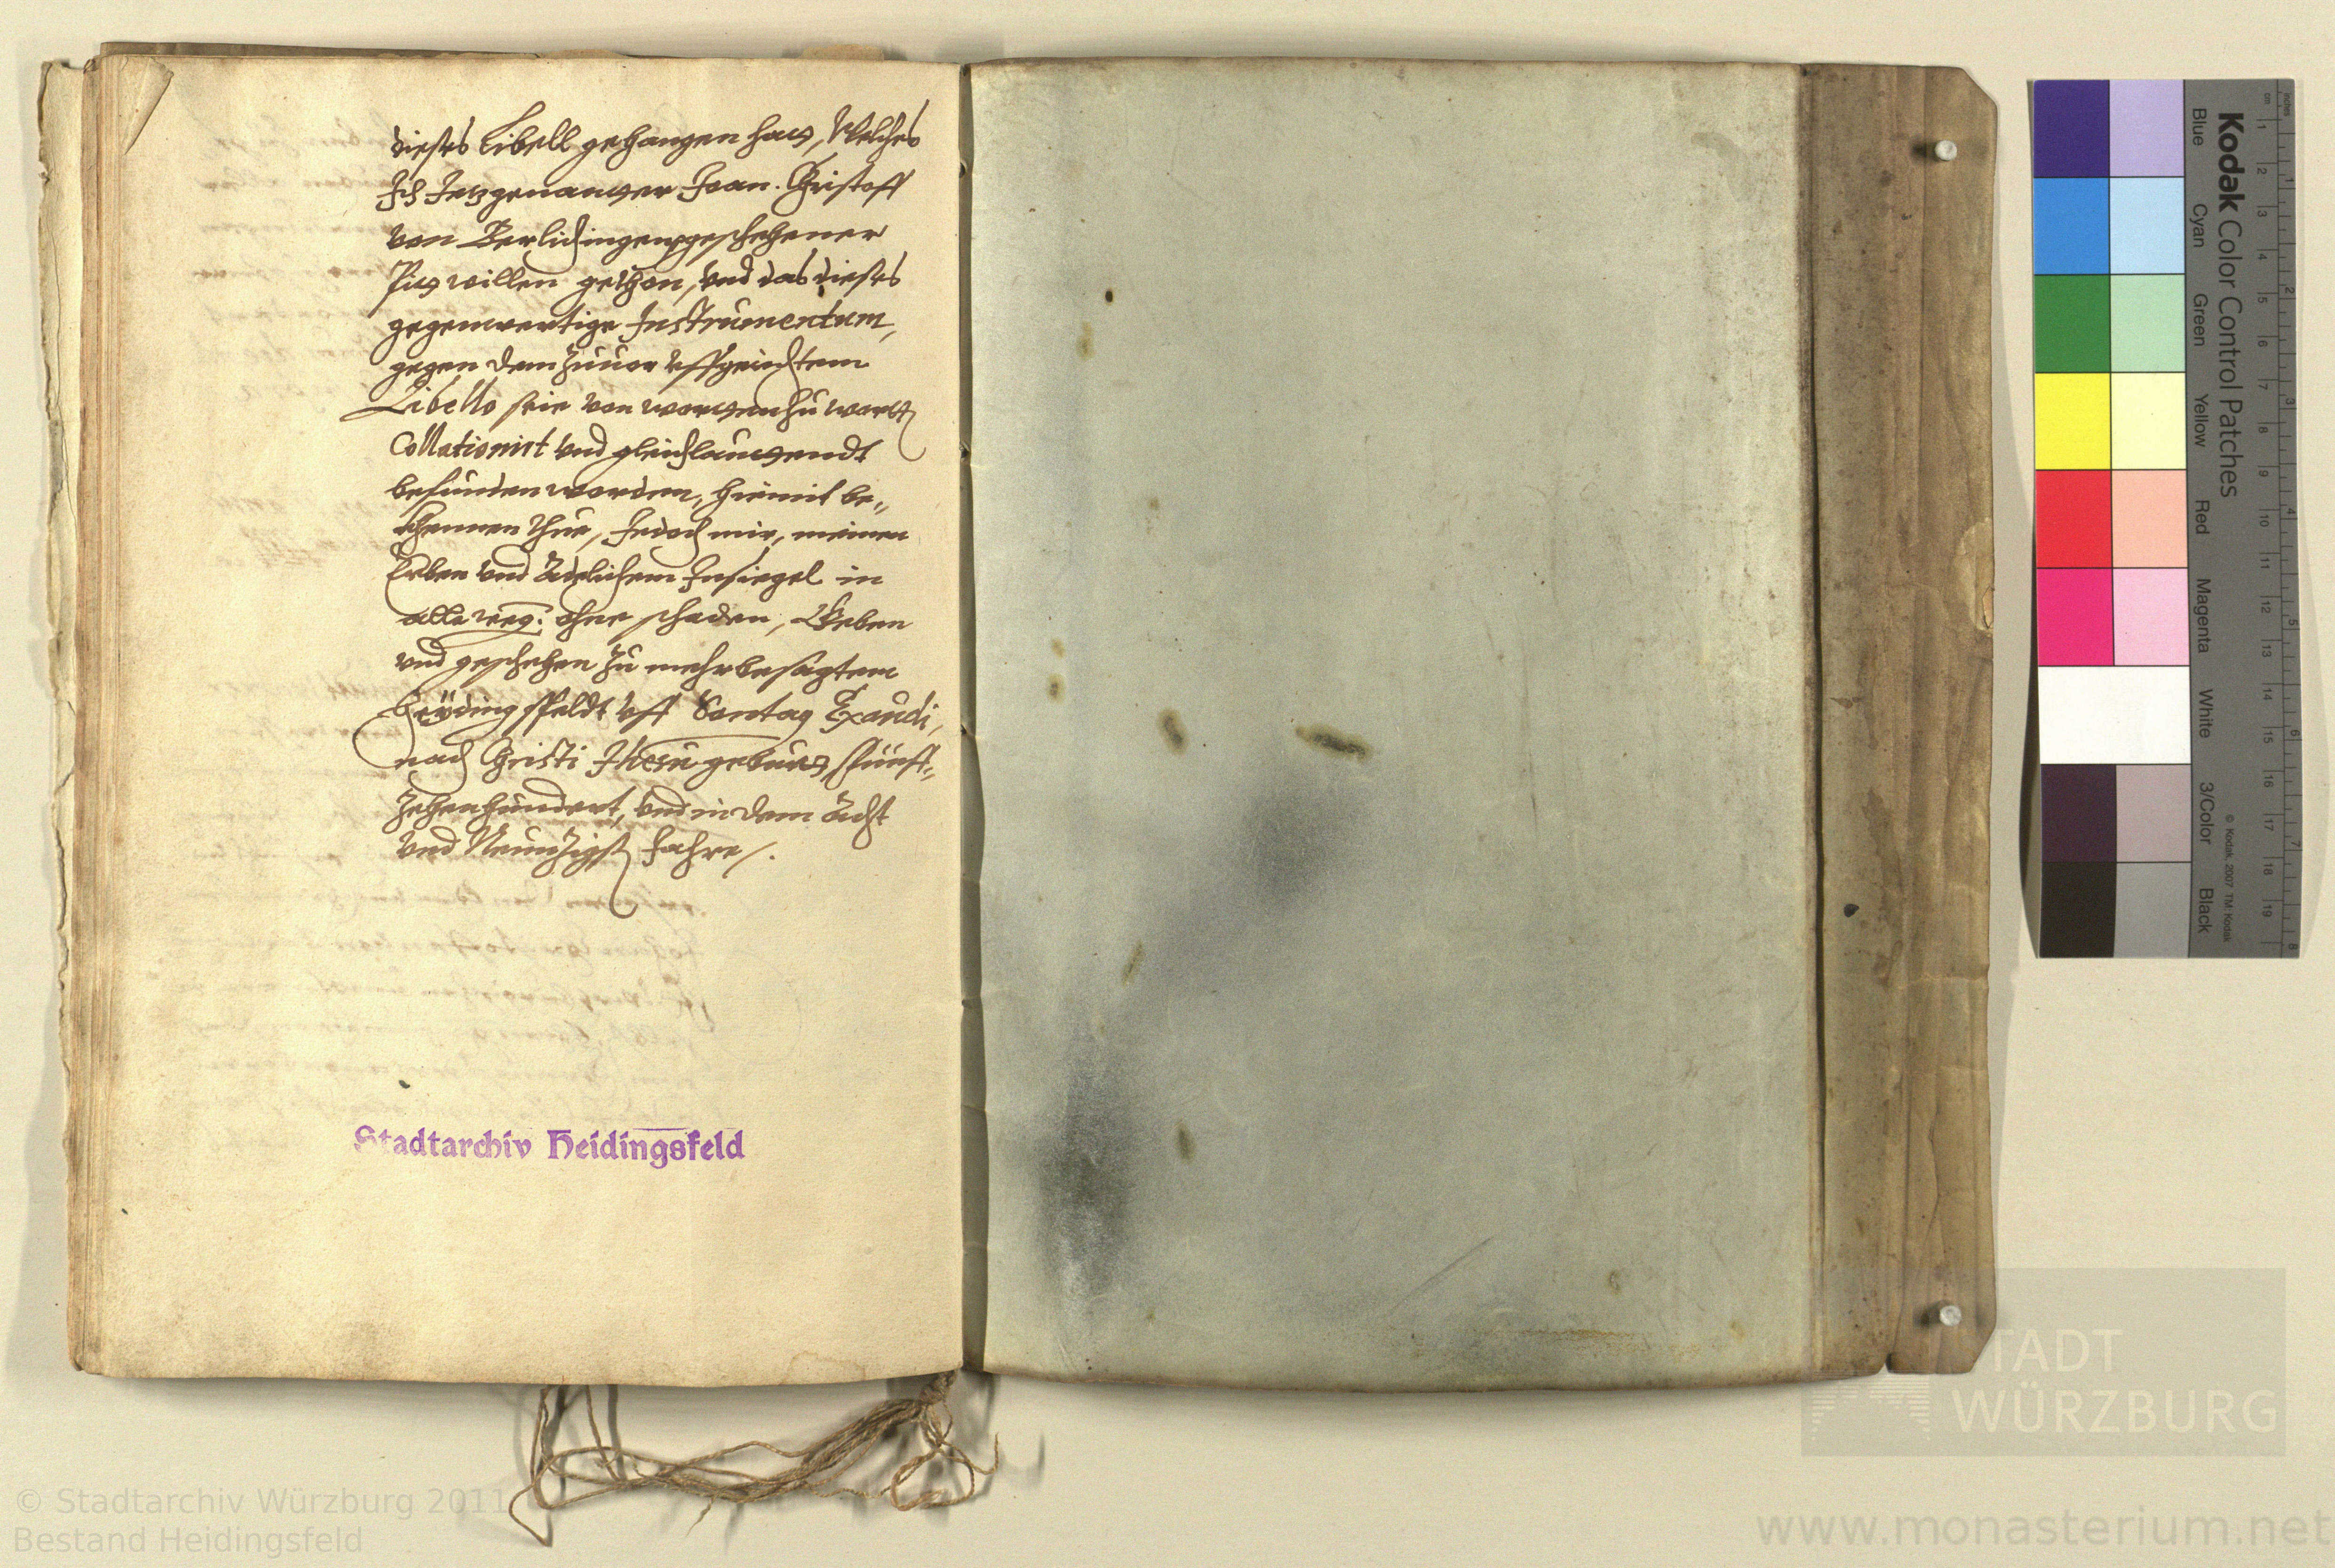 dieses Libell gehangen hatt, Welches
Ich Jetzgenantter Joan. Christoff
von Berlichingen geschehener
Pitt willen gethon, vnd das dieses
gegenwertige Instrumentum,
gegen dem zuuor vffgerichtem
Libello seie von wortten zu wortt
Collationirt vnd gleichlauttendt
befunden worden, hiemit be„
khennen thue, Jedoch mir, meinen
Erben vnd Adelichem Insiegel in
alle weg: ohne schaden, Geben
vnd geschehen zu mehrbesagtem
Heÿdingsfeldt vff Sontag Exaudi,
nach Christi Jhesu geburtt, fünff„
zehenhundert, vnd in dem Acht
vnd Neunzigst Jahre/.
Stadtarchiv Heidingsfeld
Kodak Color Control Patches
Blue Cyan Green Yellow Red Magenta White 3/Color Black
© Kodak, 2007 TM: Kodak
inches 1 2 3 4 5 6 7 8
cm 1 2 3 4 5 6 7 8 9 10 11 12 13 14 15 16 17 18 19
STADT
WÜRZBURG
© Stadtarchiv Würzburg 2011
Bestand Heidingsfeld
www.monasterium.net